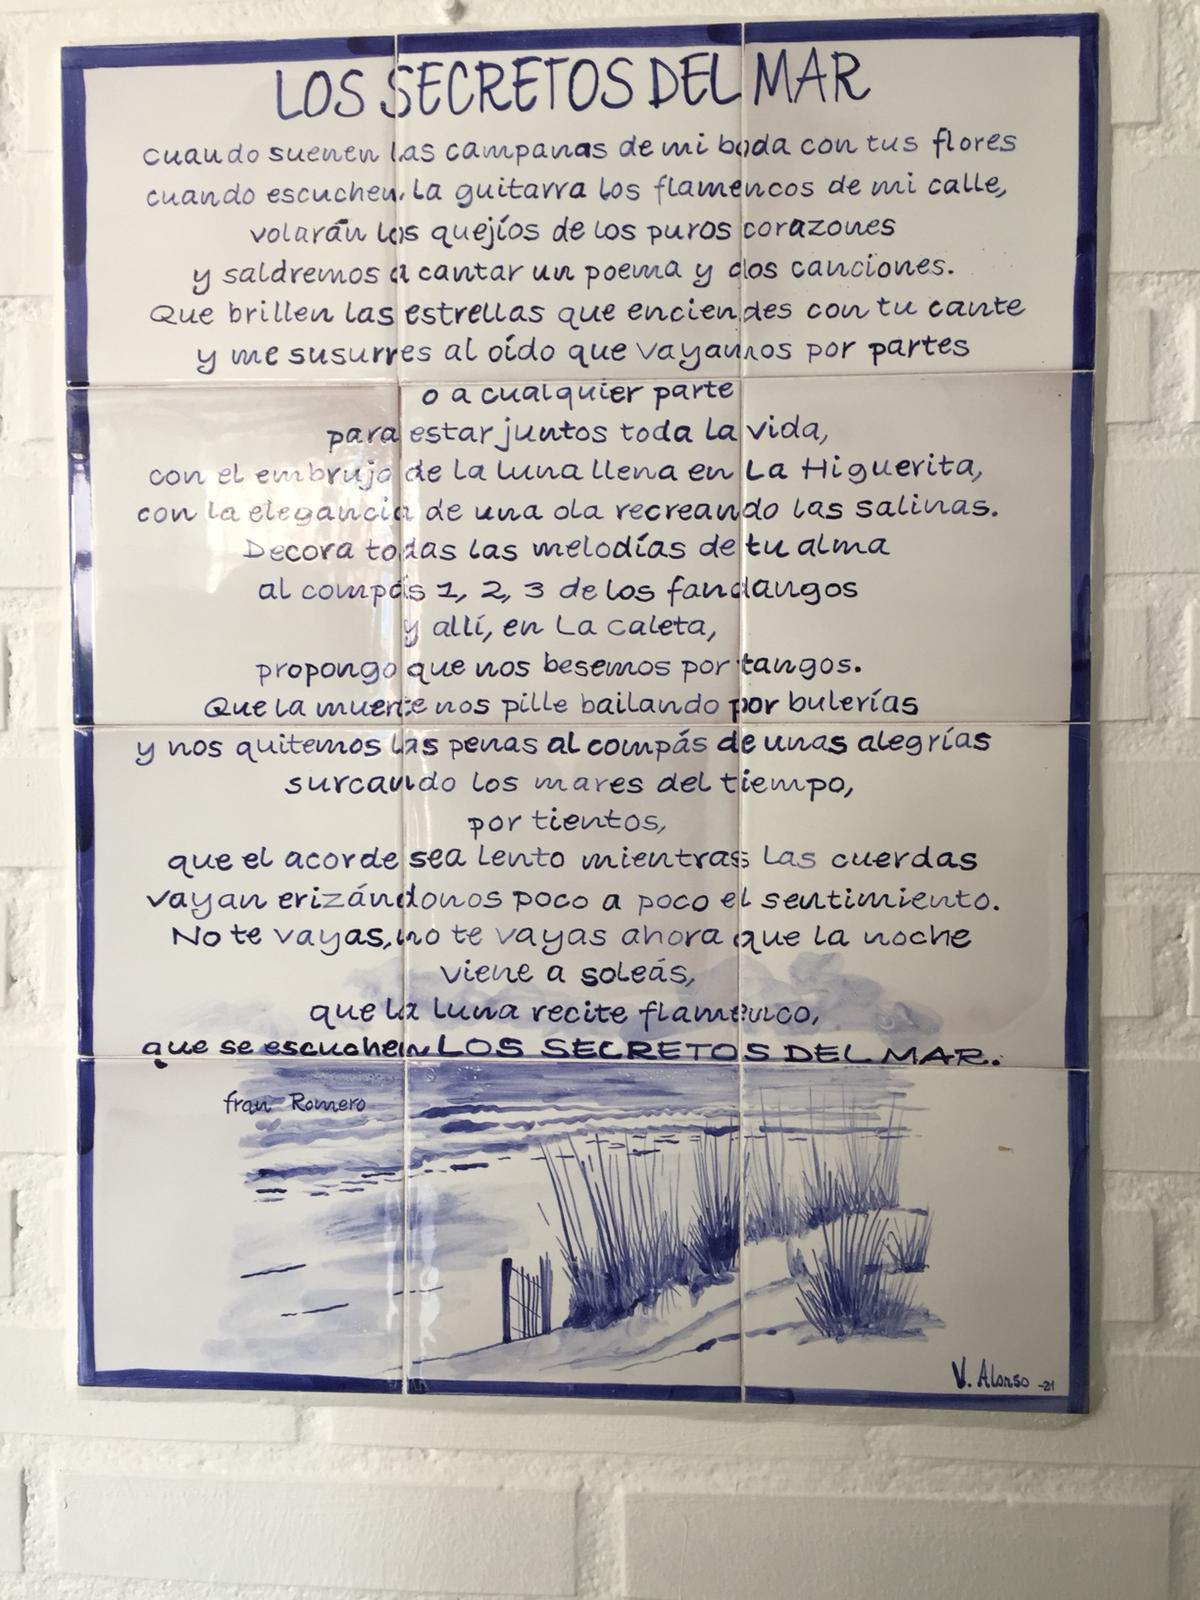 LOS SECRETOS DEL MAR
cuando suenen las campanas de mi boda con tus flores
cuando escuchen la guitarra los flamencos de mi calle,
volarán los quejíos de los puros corazones
y saldremos a cantar un poema y dos canciones.
Que brillen las estrellas que enciendes con tu cante
y me susurres al oído que vayamos por partes
o a cualquier parte
para estar juntos toda la vida,
con el embrujo de la luna llena en La Higuerita,
con la elegancia de una ola recreando las salinas.
Decora todas las melodías de tu alma
al compás 1, 2, 3 de los fandangos
y allí, en La Caleta,
propongo que nos besemos por tangos.
Que la muerte nos pille bailando por bulerías
y nos quitemos las penas al compás de unas alegrías
surcando los mares del tiempo,
por tientos,
que el acorde sea lento mientras las cuerdas
vayan erizándonos poco a poco el sentimiento.
No te vayas, no te vayas ahora que la noche
viene a soleás,
que la luna recite flamenco,
que se escuchen LOS SECRETOS DEL MAR.
fran Romero
V. Alonso -21